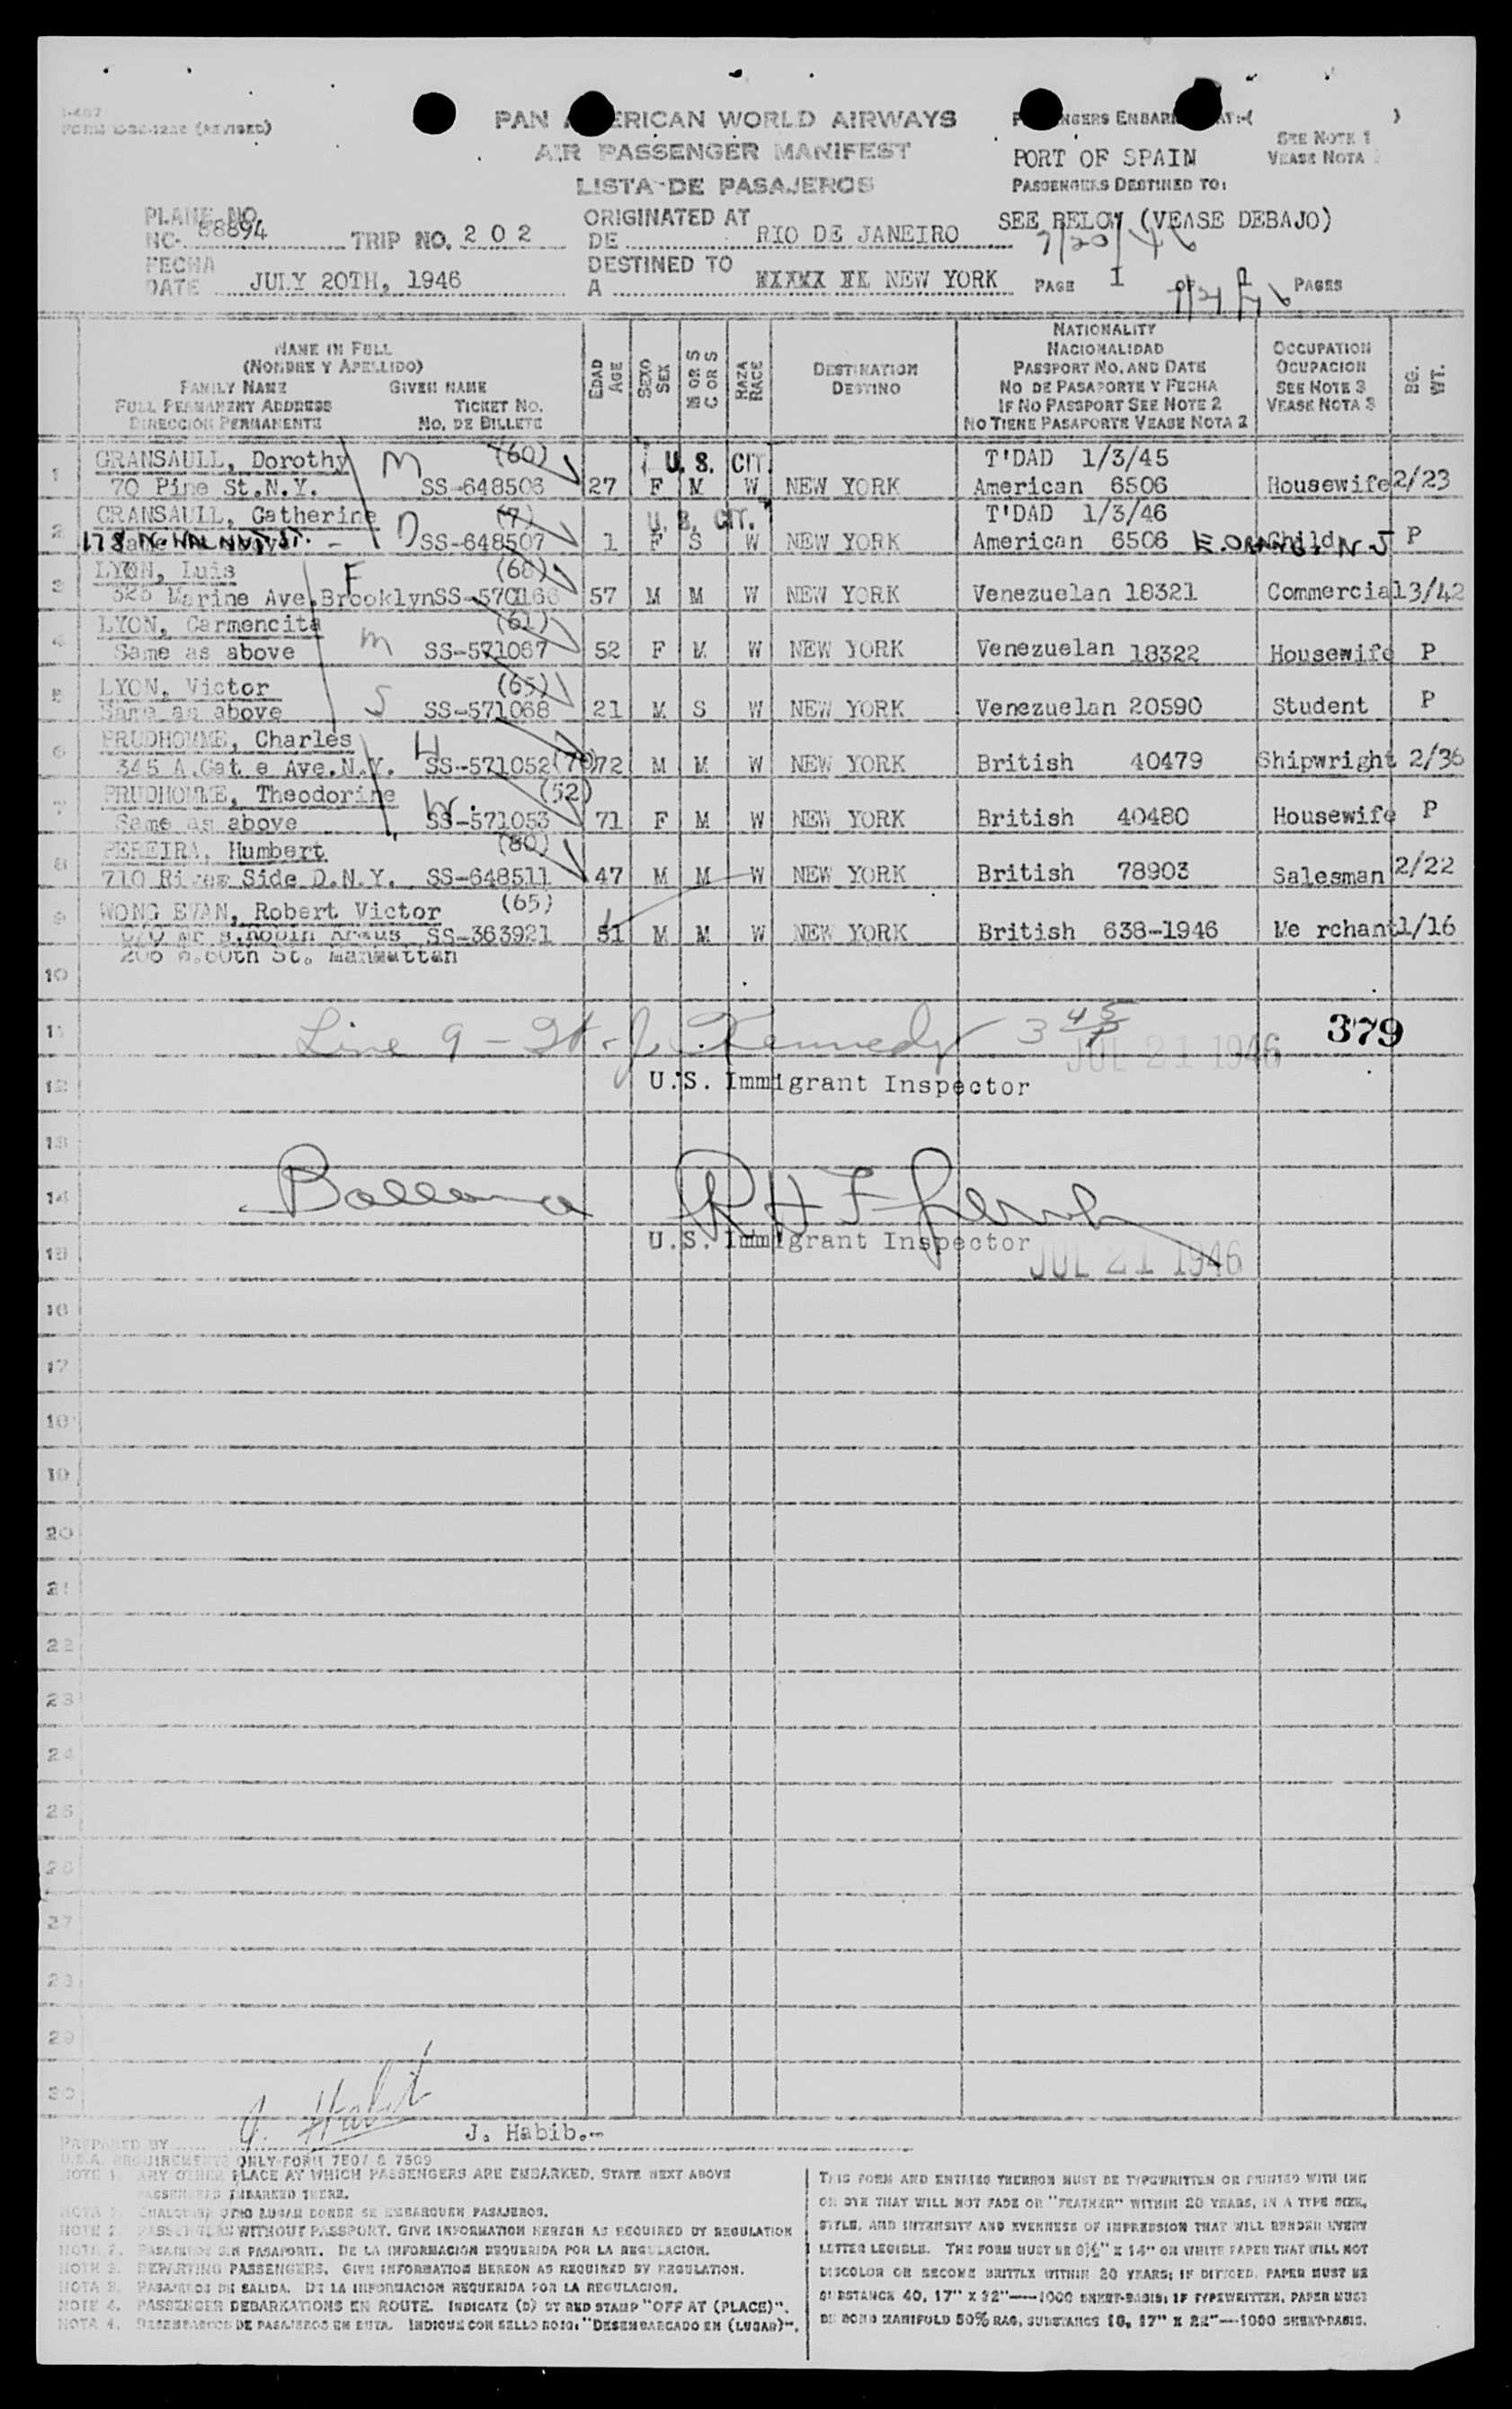 PAN AMERICAN WORLD AIRWAYS
AIR PASSENGER MANIFEST
LISTA DE PASAJEROS
PORT OF SPAIN
SEE NOTE 1
VEASE NOTA
PASSENGERS DESTINED TO:
SEE BELOW (VEASE DEBAJO)
7/20/46
PLANE NO.
NC- 88894 TRIP NO. 2 0 2
ORIGINATED AT
DE RIO DE JANEIRO
FECHA
DATE JULY 20TH, 1946
DESTINED TO
A NEW YORK
PAGE I OF PAGES
7/21/46
NAME IN FULL
(NOMBRE Y APELLIDO)
FAMILY NAME GIVEN NAME
FULL PERMANENT ADDRESS TICKET NO.
DIRECCION PERMANENTE NO. DE BILLETE
EDAD AGE
SEXO SEX
M OR S C OR S
RAZA RACE
DESTINATION
DESTINO
NATIONALITY
NACIONALIDAD
PASSPORT NO. AND DATE
NO DE PASAPORTE Y FECHA
IF NO PASSPORT SEE NOTE 2
NO TIENE PASAPORTE VEASE NOTA 2
OCCUPATION
OCUPACION
SEE NOTE 3
VEASE NOTA 3
BG. WT.
1 GRANSAULL, Dorothy M (60) U. S. CIT. T'DAD 1/3/45
70 Pine St.N.Y. SS-648506 27 F M W NEW YORK American 6506 Housewife 2/23
2 GRANSAULL, Catherine D (7) U. S. CIT. T'DAD 1/3/46
178 N. WALNUT ST. SS-648507 1 F S W NEW YORK American 6506 E. ORANGE, N J Child P
3 LYON, Luis F (68)
325 Marine Ave.Brooklyn SS-571166 57 M M W NEW YORK Venezuelan 18321 Commercial 3/42
4 LYON, Carmencita m (61)
Same as above SS-571067 52 F M W NEW YORK Venezuelan 18322 Housewife P
5 LYON, Victor S (65)
Same as above SS-571068 21 M S W NEW YORK Venezuelan 20590 Student P
6 PRUDHOMME, Charles H
345 A.Gat e Ave.N.Y. SS-571052 (70) 72 M M W NEW YORK British 40479 Shipwright 2/36
7 PRUDHOMME, Theodorine W. (52)
Same as above SS-571053 71 F M W NEW YORK British 40480 Housewife P
8 PEREIRA, Humbert (80)
710 River Side D.N.Y. SS-648511 47 M M W NEW YORK British 78903 Salesman 2/22
9 WONG EVAN, Robert Victor (65)
SS-363921 51 M M W NEW YORK British 638-1946 Me rchant 1/16
206 W.60th St. Manhattan
10
11 Line 9 - J. Kennedy 3 45 P JUL 21 1946 379
12 U.S. Immigrant Inspector
13
14
15 U.S. Immigrant Inspector JUL 21 1946
16
17
18
19
20
21
22
23
24
25
26
27
28
29
30
J. Habit
PREPARED BY J. Habib.-
U.S.A. REQUIREMENTS ONLY-FORM 7507 & 7509
NOTE 1. ANY OTHER PLACE AT WHICH PASSENGERS ARE EMBARKED, STATE NEXT ABOVE
PASSENGERS EMBARKED THERE.
NOTA 1. CUALQUIER OTRO LUGAR DONDE SE EMBARQUEN PASAJEROS.
NOTE 2. PASSENGERS WITHOUT PASSPORT. GIVE INFORMATION HEREON AS REQUIRED BY REGULATION
NOTA 2. PASAJEROS SIN PASAPORTE. DE LA INFORMACION REQUERIDA POR LA REGULACION.
NOTE 3. DEPARTING PASSENGERS. GIVE INFORMATION HEREON AS REQUIRED BY REGULATION.
NOTA 3. PASAJEROS DE SALIDA. DE LA INFORMACION REQUERIDA POR LA REGULACION.
NOTE 4. PASSENGER DEBARKATIONS EN ROUTE. INDICATE (D) BY RED STAMP "OFF AT (PLACE)".
NOTA 4. DESEMBARCOS DE PASAJEROS EN RUTA. INDIQUE CON SELLO ROJO: "DESEMBARCADO EN (LUGAR)".
THIS FORM AND ENTRIES THEREON MUST BE TYPEWRITTEN OR PRINTED WITH INK
OR DYE THAT WILL NOT FADE OR "FEATHER" WITHIN 20 YEARS, IN A TYPE SIZE,
STYLE, AND INTENSITY AND EVENNESS OF IMPRESSION THAT WILL RENDER EVERY
LETTER LEGIBLE. THE FORM MUST BE 8½" X 14" ON WHITE PAPER THAT WILL NOT
DISCOLOR OR BECOME BRITTLE WITHIN 20 YEARS; IF DITTOED, PAPER MUST BE
SUBSTANCE 40, 17" X 22"----1000 SHEET-BASIS; IF TYPEWRITTEN, PAPER MUST
BE BOND MANIFOLD 50% RAG, SUBSTANCE 18, 17" X 22"---1000 SHEET-BASIS.